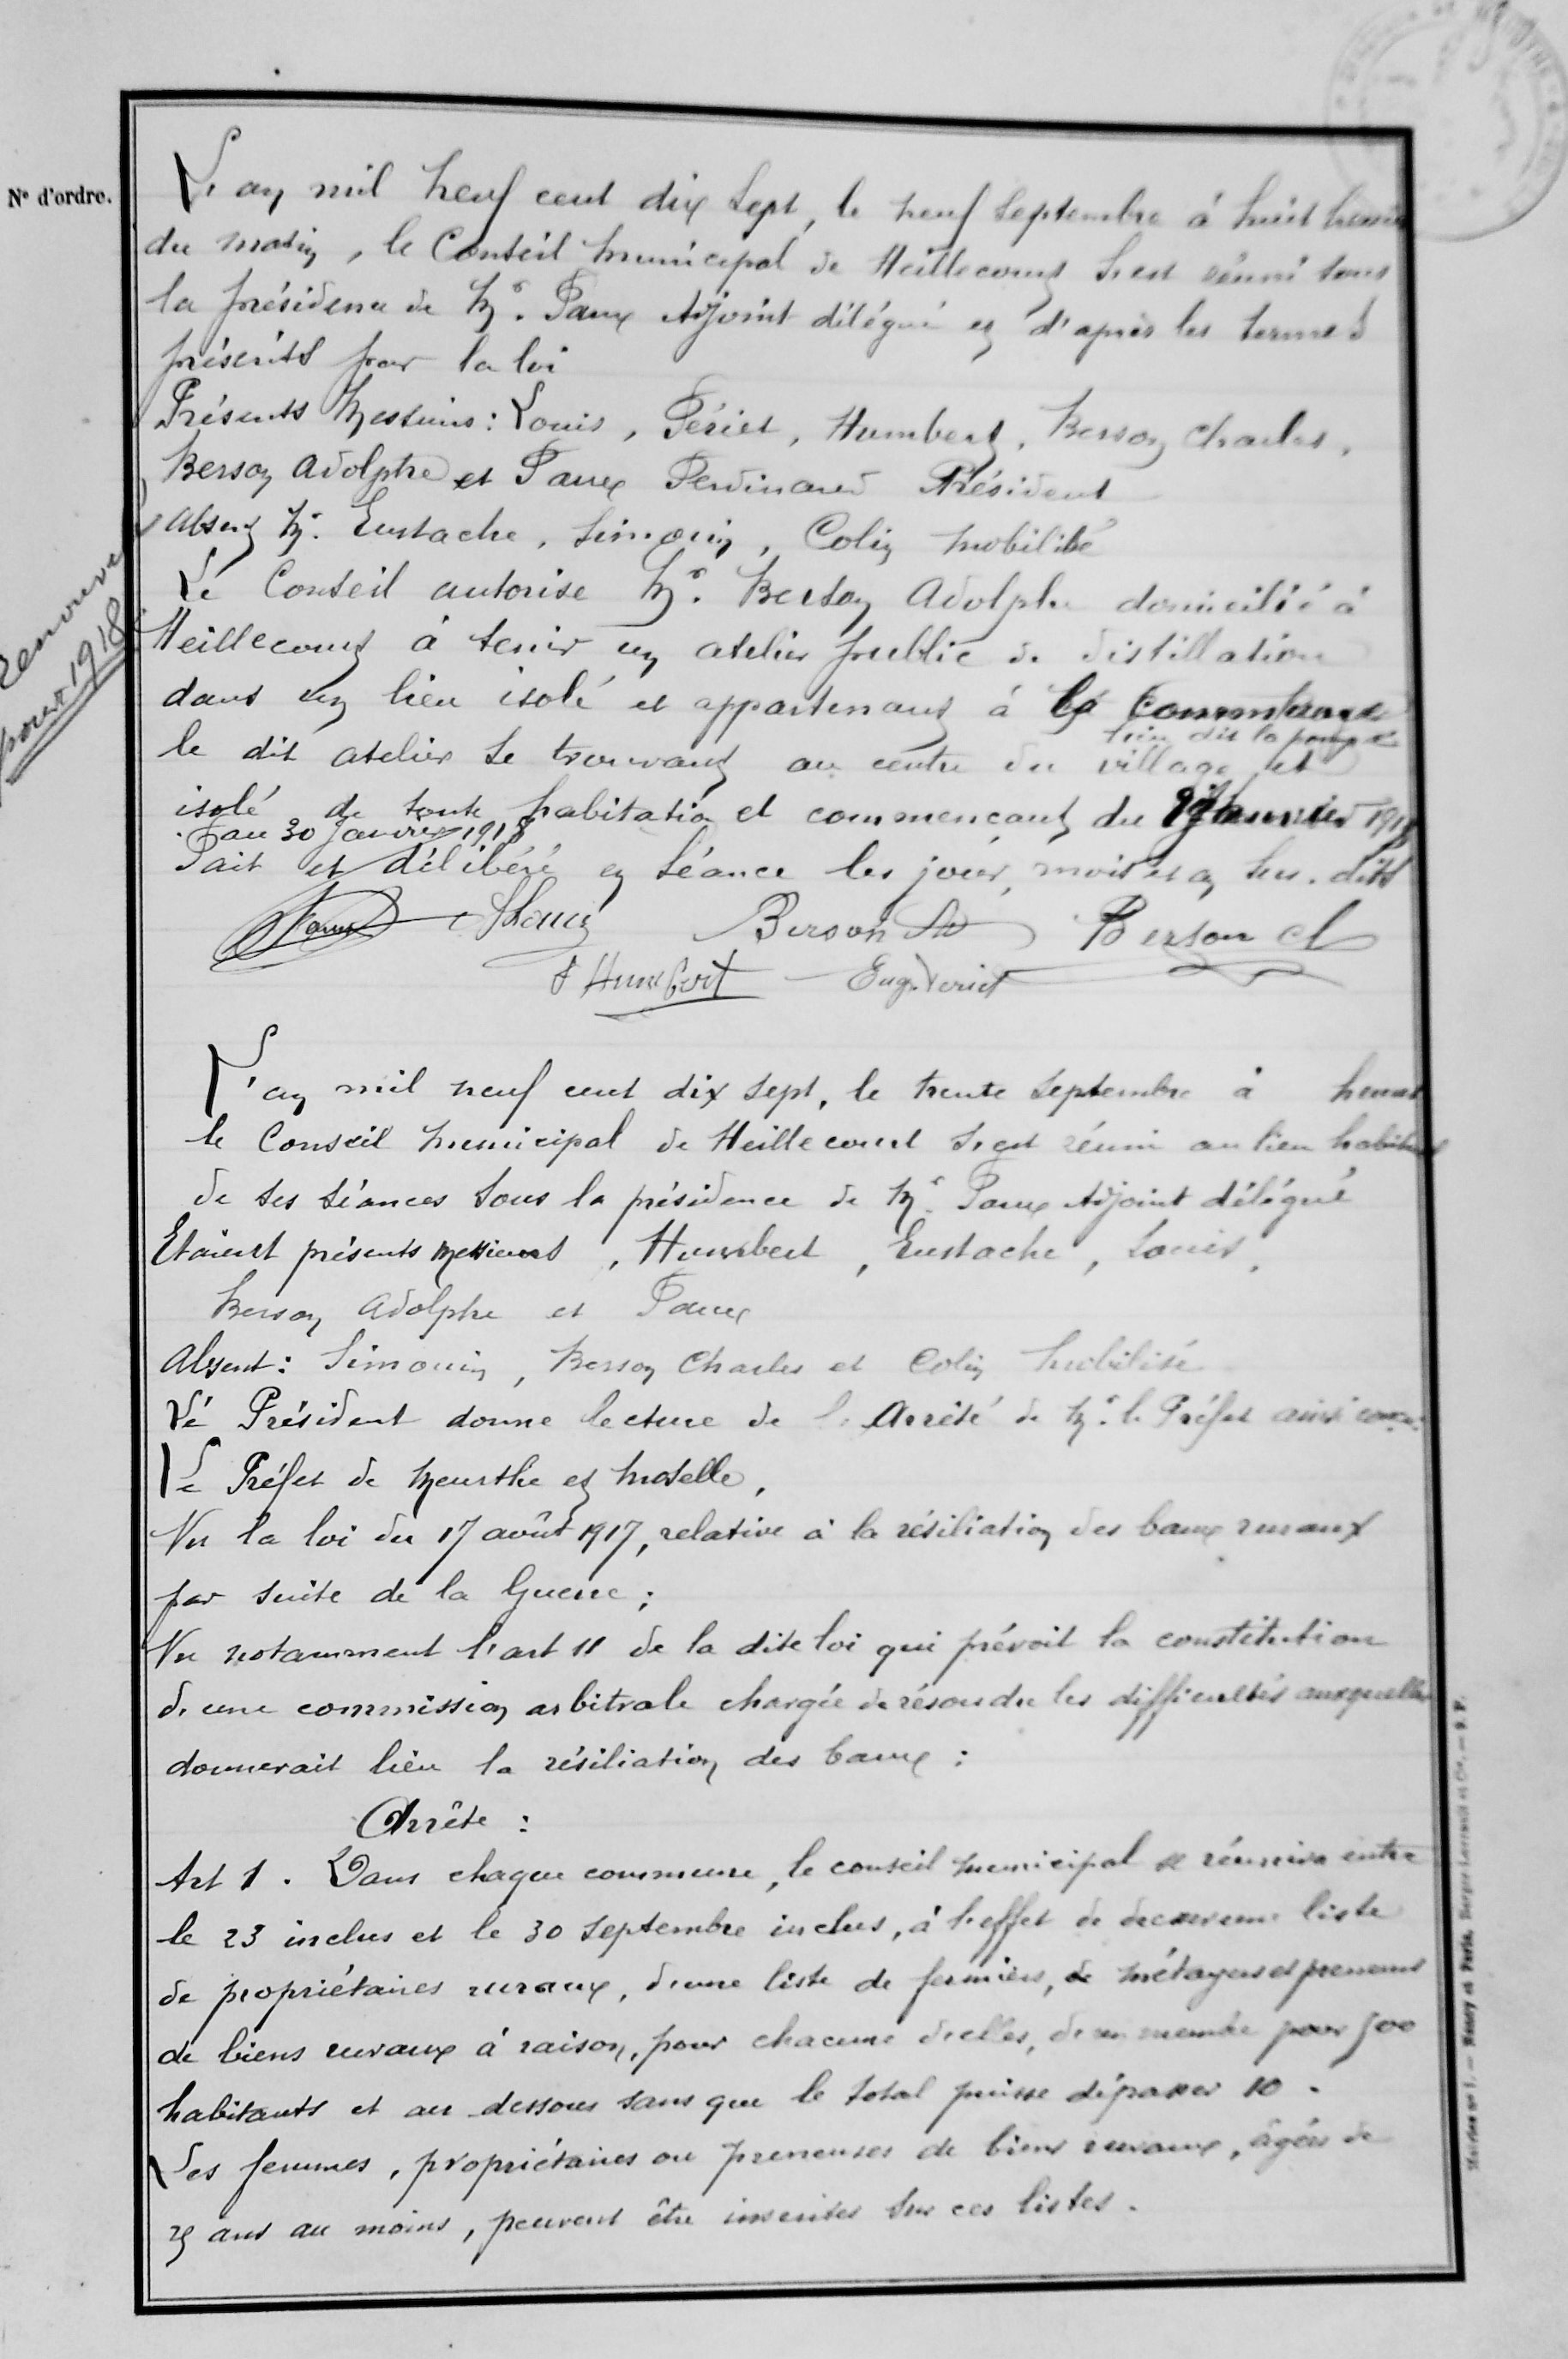 N° d'ordre.
L'an mil neuf cent dix sept, le neuf Septembre à huit heures
du matin, le Conseil municipal de Heillecourt s'est réuni sous
la présidence de Mr. Paux Adjoint délégué en d'après les termes
préscrits par la loi
Présents Messieurs : Louis, Périet, Humbert, Berson Charles,
Berson Adolphe et Paux Ferdinand Président
Absent M. Eustache, Simonin, Colin mobilisé
Renouvelé pour 1918
Le Conseil autorise Mr. Berson Adolphe domicilié à
Heillecourt à tenir un atelier public de distillation
dans un lieu isolé et appartenant à la Commune
lieu dit la pompe
le dit atelier se trouvant au centre du village et
isolé de toute habitation et commencant du Janvier 1918
au 30 Janvier 1918
Fait et délibéré en séance les jour, mois et an sus. dits
Paux Louis Berson Ad Berson Ch
Humbert Eug. Periet
L'an mil neuf cent dix sept, le trente Septembre à heures
le Conseil municipal de Heillecourt s'est réuni au lieu habituel
de ses séances sous la présidence de Mr. Paux Adjoint délégué
Etaient présents Messieurs, Humbert, Eustache, Louis,
Berson Adolphe et Paux
Absent : Simonin, Berson Charles et Colin mobilisé
Le Président donne lecture de l'Arrêté de Mr. le Préfet ainsi conçu
Le Préfet de Meurthe et Moselle,
Vu la loi du 17 août 1917, relative à la résiliation des baux ruraux
par suite de la Guerre ;
Vu notamment l'art 11 de la dite loi qui prévoit la constitution
d'une commission arbitrale chargée de résoudre les difficultés auxquelles
donnerait lieu la résiliation des baux :
Arrête :
Art 1. Dans chaque commune, le conseil municipal se réunira entre
le 23 inclus et le 30 Septembre inclus, à l'effet de dresser une liste
de propriétaires ruraux, d'une liste de fermiers, de métayers et preneurs
de biens ruraux à raison, pour chacune d'elles, d'un membre pour 500
habitants et au-dessous sans que le total puisse dépasser 10.
Les femmes, propriétaires ou preneuses de biens ruraux, âgées de
25 ans au moins, peuvent être inscrites sur ces listes.
Nancy et Paris. Berger-Levrault et Cie.